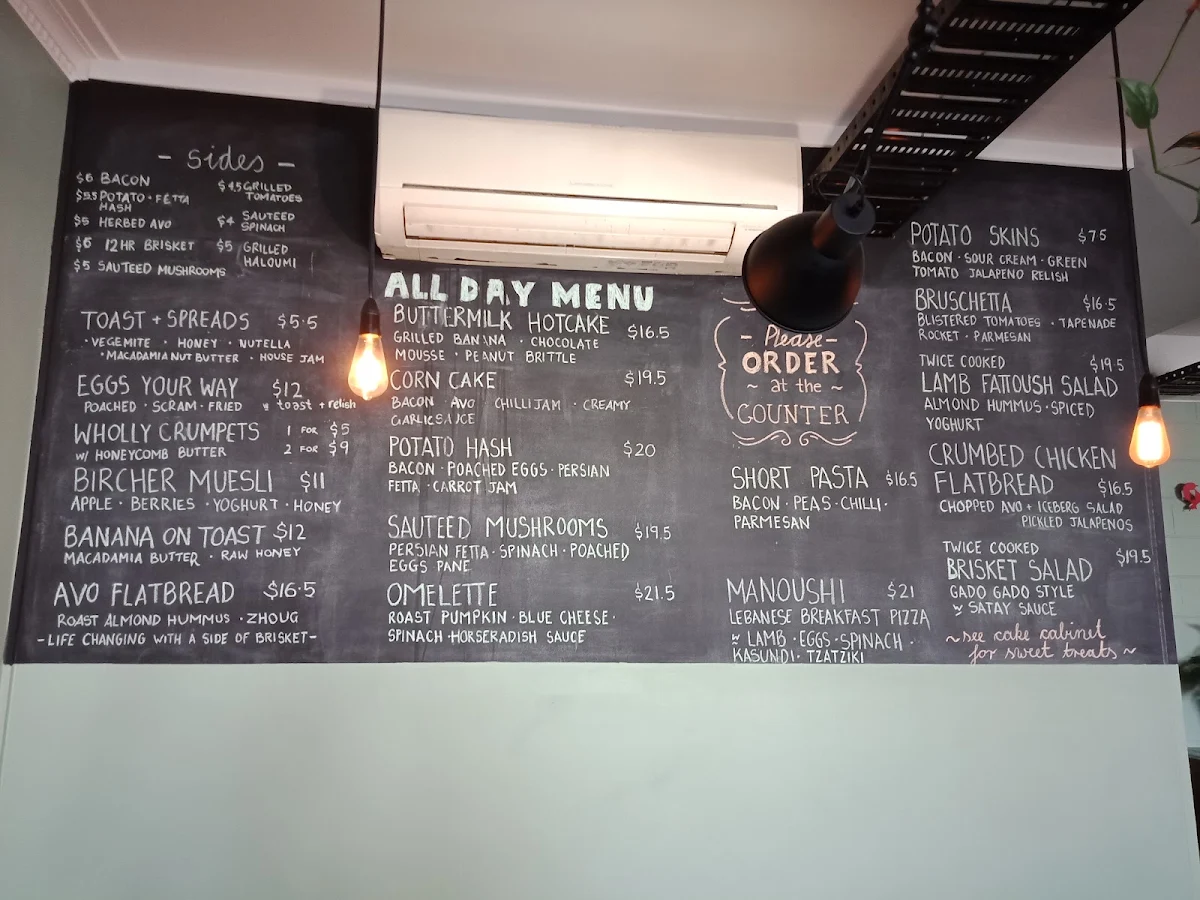 - sides -
$6 BACON
$5.5 POTATO · FETTA
HASH
$5 HERBED AVO
$6 12HR BRISKET
$5 SAUTEED MUSHROOMS
$4.5 GRILLED
TOMATOES
$4 SAUTEED
SPINACH
$5 GRILLED
HALOUMI
TOAST + SPREADS $5·5
· VEGEMITE · HONEY · NUTELLA
· MACADAMIA NUT BUTTER · HOUSE JAM
EGGS YOUR WAY $12
POACHED · SCRAM · FRIED w toast + relish
WHOLLY CRUMPETS 1 FOR $5
W/ HONEYCOMB BUTTER 2 FOR $9
BIRCHER MUESLI $11
APPLE · BERRIES · YOGHURT · HONEY
BANANA ON TOAST $12
MACADAMIA BUTTER · RAW HONEY
AVO FLATBREAD $16·5
ROAST ALMOND HUMMUS · ZHOUG
- LIFE CHANGING WITH A SIDE OF BRISKET -
ALL DAY MENU
BUTTERMILK HOTCAKE $16.5
GRILLED BANANA · CHOCOLATE
MOUSSE · PEANUT BRITTLE
CORN CAKE $19.5
BACON · AVO CHILLI JAM · CREAMY
GARLIC SAUCE
POTATO HASH $20
BACON · POACHED EGGS · PERSIAN
FETTA · CARROT JAM
SAUTEED MUSHROOMS $19.5
PERSIAN FETTA · SPINACH · POACHED
EGGS PANE
OMELETTE $21.5
ROAST PUMPKIN · BLUE CHEESE ·
SPINACH · HORSERADISH SAUCE
- Please -
ORDER
~ at the ~
COUNTER
SHORT PASTA $16.5
BACON · PEAS · CHILLI ·
PARMESAN
MANOUSHI $21
LEBANESE BREAKFAST PIZZA
w LAMB · EGGS · SPINACH ·
KASUNDI · TZATZIKI
POTATO SKINS $7.5
BACON · SOUR CREAM · GREEN
TOMATO JALAPENO RELISH
BRUSCHETTA $16·5
BLISTERED TOMATOES · TAPENADE
ROCKET · PARMESAN
TWICE COOKED $19.5
LAMB FATTOUSH SALAD
ALMOND HUMMUS · SPICED
YOGHURT
CRUMBED CHICKEN
FLATBREAD $16.5
CHOPPED AVO + ICEBERG SALAD
PICKLED JALAPENOS
TWICE COOKED $19.5
BRISKET SALAD
GADO GADO STYLE
w SATAY SAUCE
~ see cake cabinet
for sweet treats ~